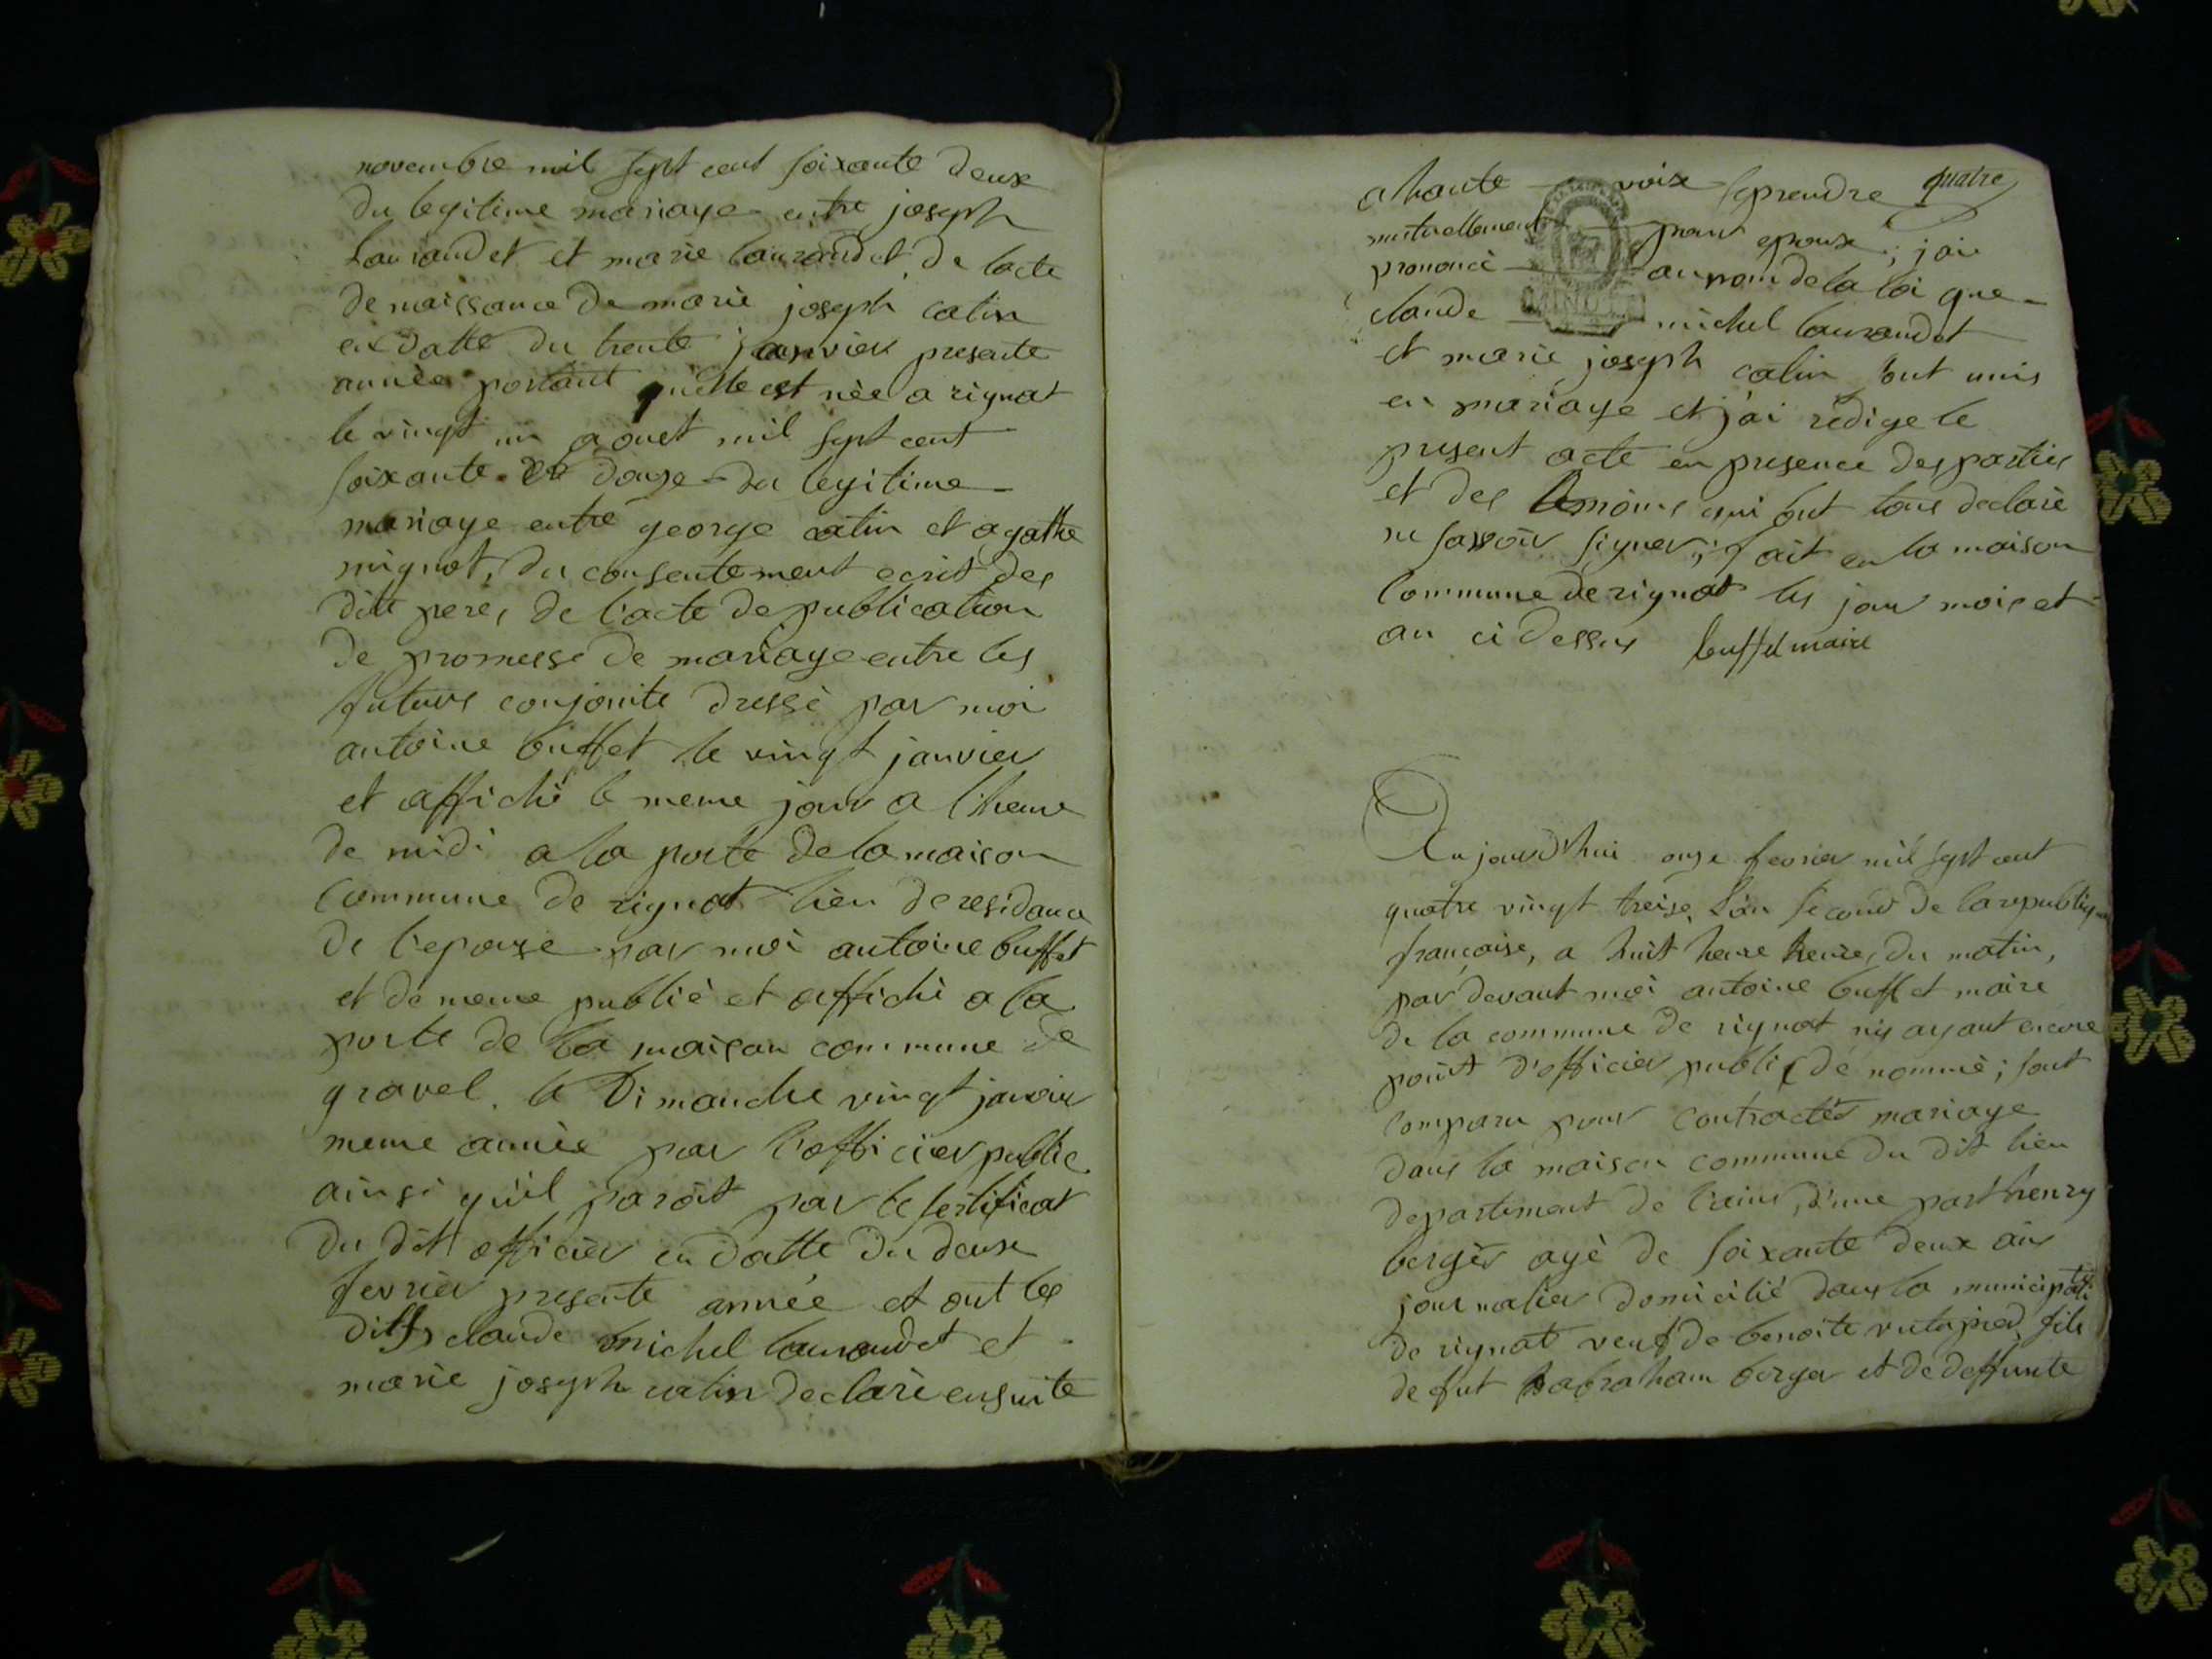 novembre mil sept cent soixante deux
du legitime mariage entre joseph
laurandet et marie laurandet, de lacte
de naissance de marie joseph catin
en datte du trente janvier presente
année portant quelle est née a rignat
le vingt un aouet mil sept cent
soixante douze du legitime
mariage entre george catin et agathe
mignot, du consentement ecrit des
dit pere, de l'acte de publication
de promesse de mariage entre les
futurs conjoints dressé par moi
antoine buffet le vingt janvier
et affiché le meme jour a l'heure
de midi a la porte de la maison
commune de rignat lieu de residance
de l'epouse par moi antoine buffet
et de meme publié et affiché a la
porte de la maison commune de
gravel, le Dimanche vingt janvier
meme année par l'officier public
ainsi qu'il paroit par le sertificat
du dit officier en datte du deux
fevrier presente année et ont les
dits claude michel laurandet et
marie joseph catin declaré ensuite
quatre
a haute voix se prendre
mutuellement pour epoux; j'ai
prononcé au nom de la loi que
claude michel laurandet
MINUTE
et marie joseph catin sont unis
en mariage et j'ai rédigé le
present acte en presence des parties
et des temoins qui ont tous declaré
ne savoir signer; fait en la maison
commune de rignat les jour mois et
an ci dessus buffet maire
Aujourd'hui onze fevrier mil sept cent
quatre vingt treise, l'an second de la republique
françoise, a huit heure du matin,
par devant moi antoine buffet maire
de la commune de rignat n'y ayant encore
point d'officier public de nommé; sont
comparu pour contracter mariage
dans la maison commune du dit lieu
departement de l'ains, d'une part henry
berger agé de soixante deux ans
journalier domicilié dans la municipalité
de rignat veuf de benoite vutapied, fils
de fut abraham berger et de deffunte